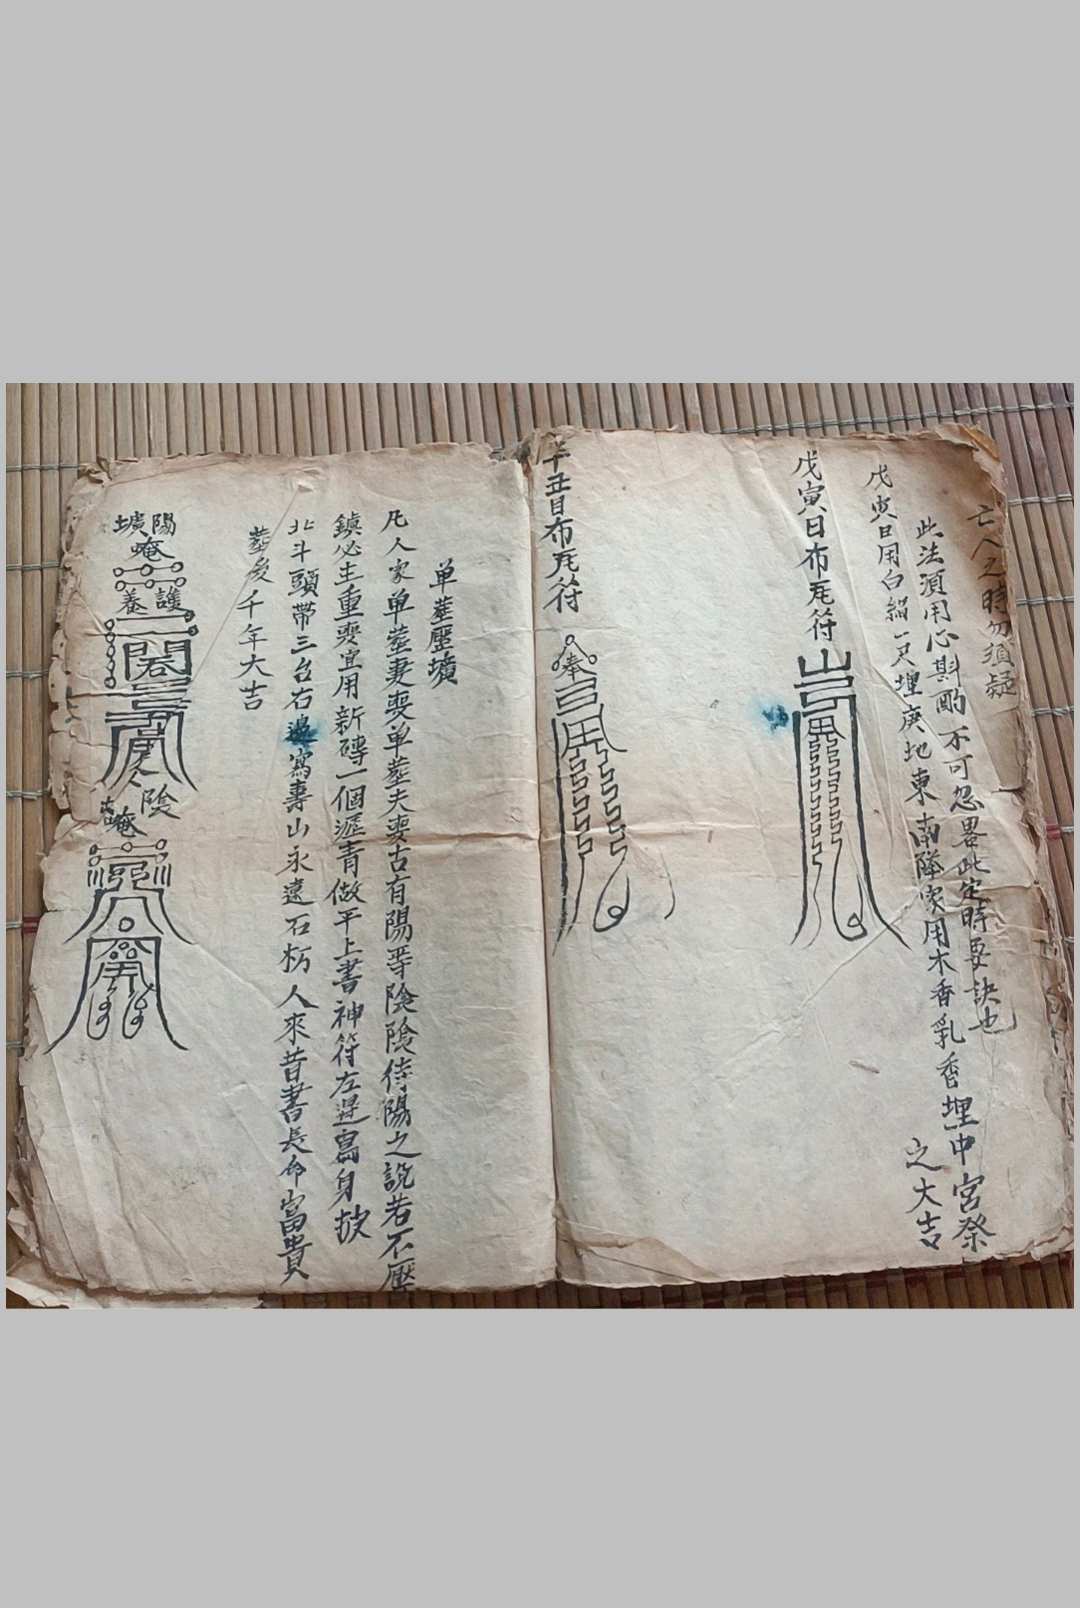 亡人之時勿須疑
此法須用心斟酌不可忽畧此定時要訣也
戊寅日用白絹一尺埋庚地東南隆家用木香乳香埋中宮祭
之大吉
戊寅日布瓦符
辛丑日布瓦符
奉
单塟壓壙
凡人家单塟妻喪单塟夫喪古有陽等陰陰待陽之說若不壓
鎮必主重喪宜用新磚一個瀝青做平上書神符左邊寫身披
北斗頭帶三台右邊寫壽山永遠石朽人來昔書長命富貴
塟後千年大吉
陽壙
唵
護養
陰
唵